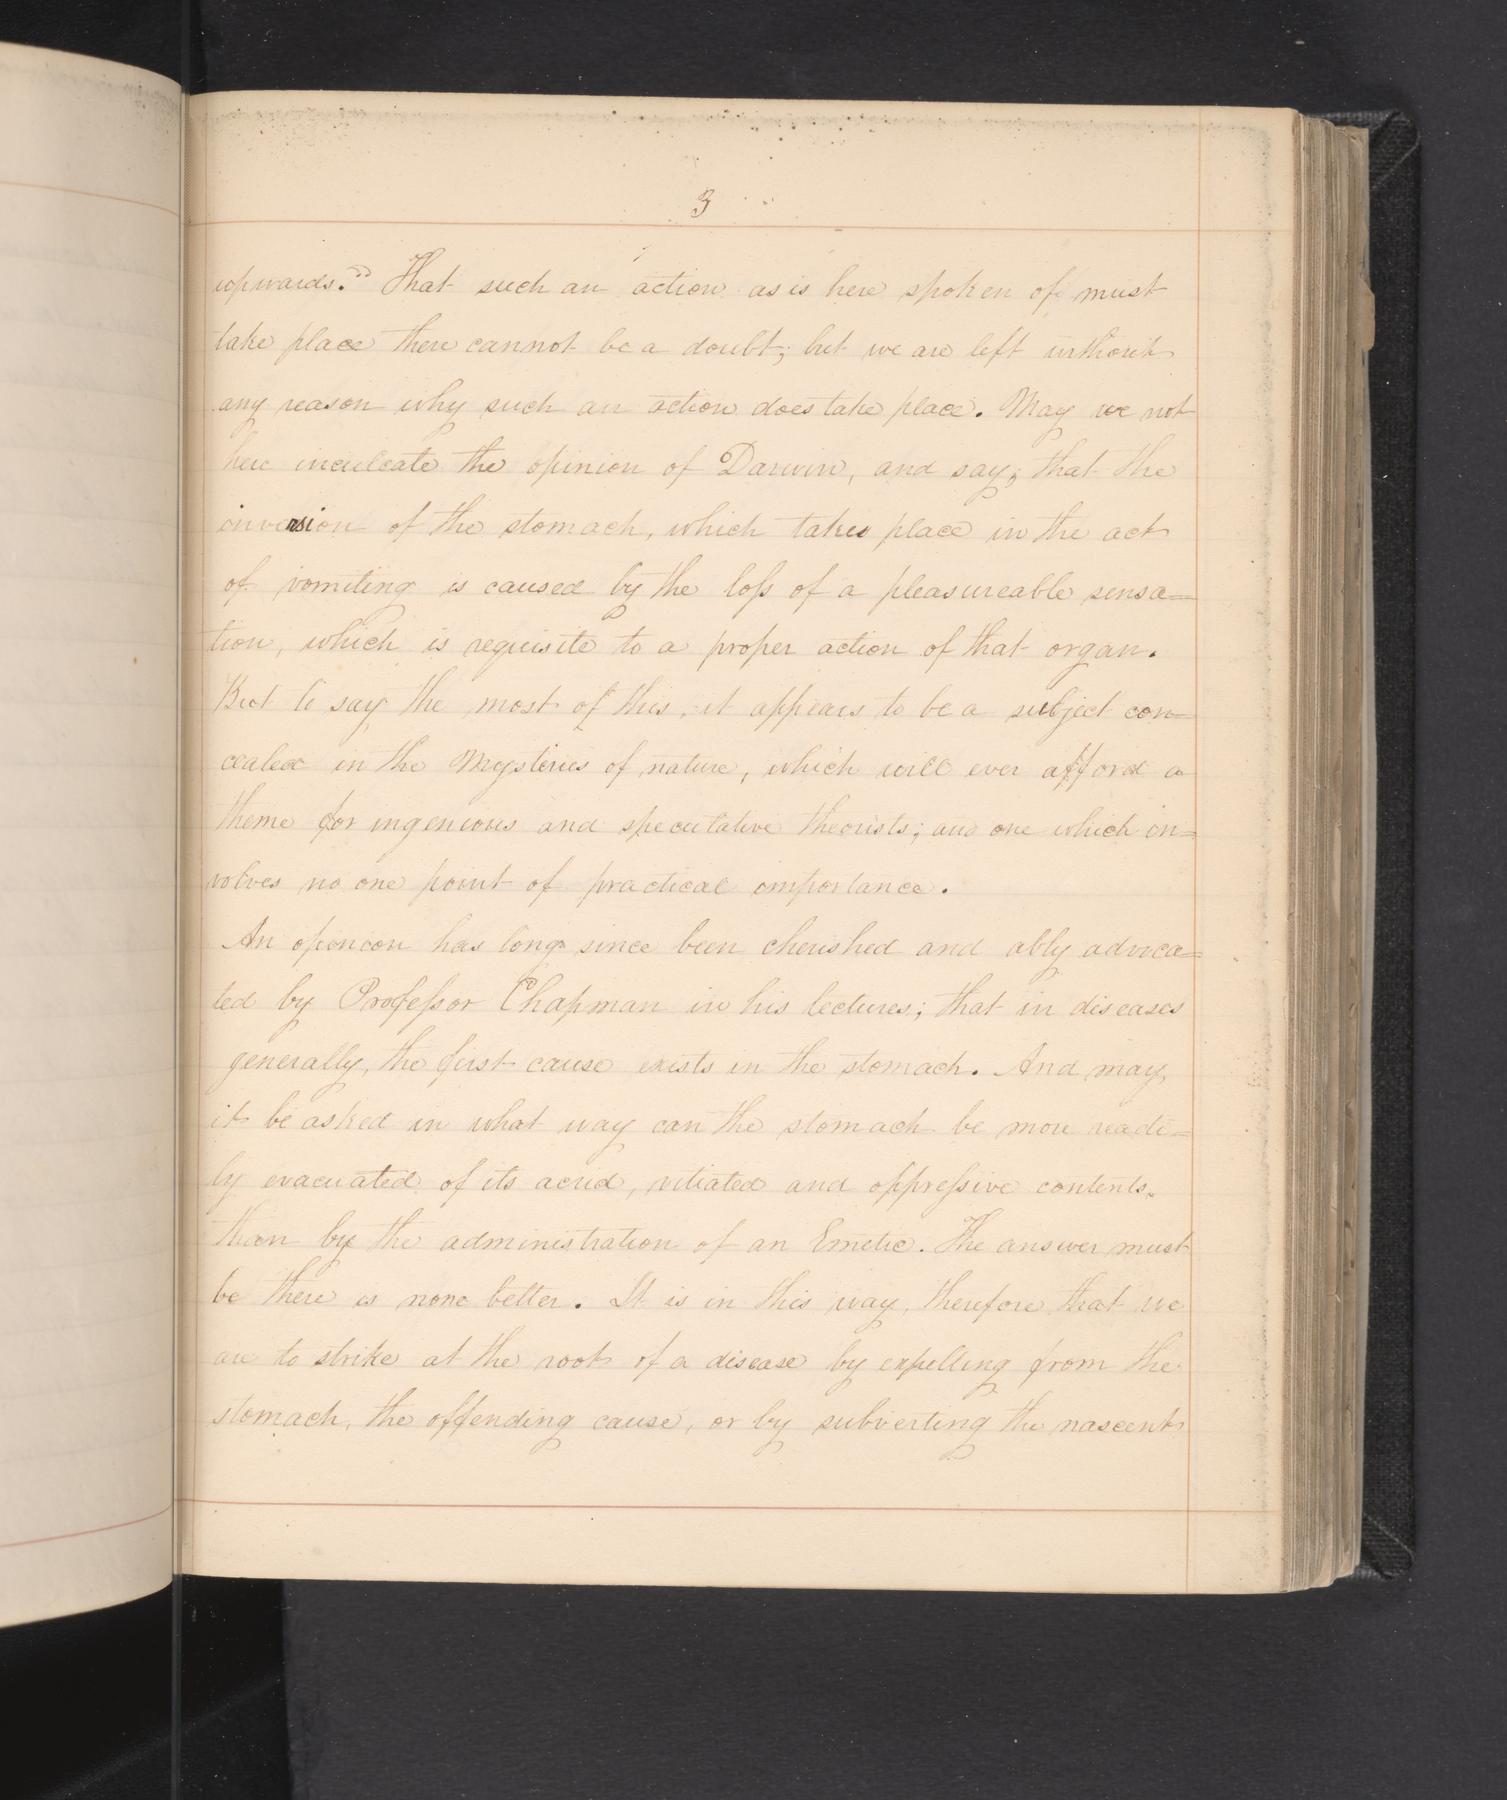 3
upwards." That such an action as is here spoken of must
take place there cannot be a doubt; but we are left without
any reason why such an action does take place. May we not
here inculcate the opinion of Darwin, and say, that the
inversion of the stomach, which takes place in the act
of vomiting is caused by the loſs of a pleasureable sensa=
tion, which is requisite to a proper action of that organ.
But to say the most of this, it appears to be a subject con=
cealed in the Mysteries of nature, which will ever afford a
theme for ingenious and speculative theorists; and one which in=
volves no one point of practical importance.
An opinion has long since been cherished and ably advoca=
ted by Profeſsor Chapman in his lectures; that in diseases
generally, the first cause exists in the stomach. And may
it be asked in what way can the stomach be more readi=
ly evacuated of its acrid, vitiated and oppreſsive contents.
than by the administration of an Emetic. The answer must
be there is none better. It is in this way, therefore that we
are to strike at the root of a disease by expelling from the
stomach, the offending cause, or by subverting the nascent